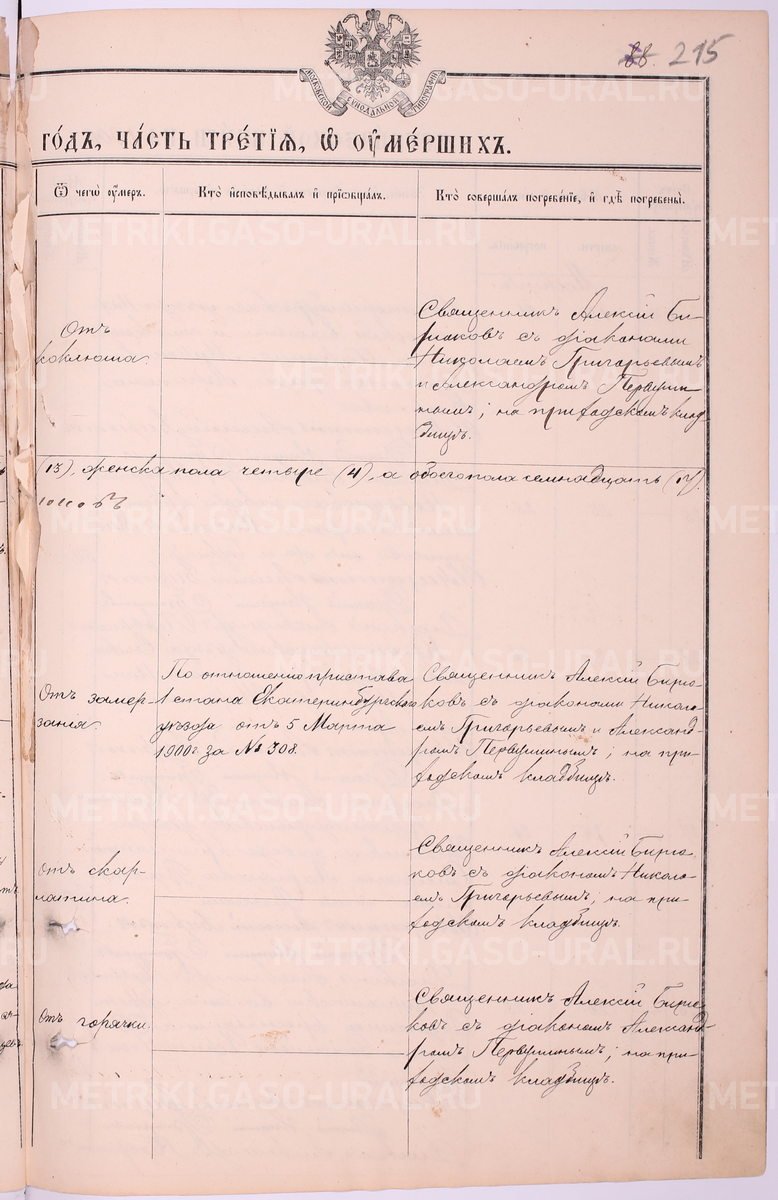 88. 215
МОСКОВСКОЙ СѴНОДАЛЬНОЙ ТИПОГРАФІИ
ГО́ДЪ, ЧА́СТЬ ТРЕ́ТІѦ, Ѡ҆ ОУ҆МЕ́РШИХЪ.
Ѿ чегѡ̀ оу҆́меръ.
Кто̀ и҆сповѣ́дывалъ и҆ прїѡбща́лъ.
Кто̀ соверша́лъ погребе́нїе, и҆ гдѣ̀ погребены̀.
Отъ
коклюша.
Священникъ Алексій Би-
рюковъ съ діаконами
Николаемъ Григорьевымъ
и Александромъ Первуши-
нымъ; на приходскомъ клад-
бищѣ.
(13), женска пола четыре (4), а обоего пола семнадцать (17).
Отъ замер-
занія.
По отношенію пристава
1 стана Екатеринбургскаго
уѣзда отъ 5 Марта
1900 г. за № 308.
Священникъ Алексій Бирю-
ковъ съ діаконами Никола-
емъ Григорьевымъ и Александ-
ромъ Первушинымъ; на при-
ходскомъ кладбищѣ.
Отъ скар-
латина.
Священникъ Алексій Бирю-
ковъ съ діакономъ Никола-
емъ Григорьевымъ; на при-
ходскомъ кладбищѣ.
Отъ горячки.
Священникъ Алексій Бирю-
ковъ съ діакономъ Александ-
ромъ Первушинымъ; на при-
ходскомъ кладбищѣ.
METRIKI.GASO-URAL.RU